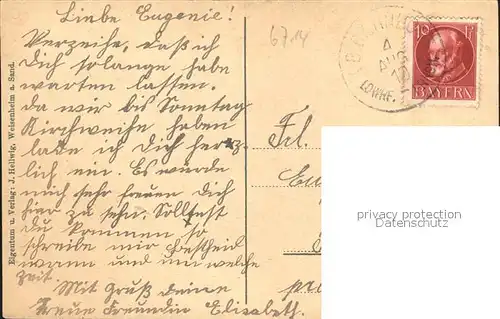 Liebe Eugenie!
Verzeihe, daß ich
Dich solange habe
warten lassen.
da wir bis Sonntag
Kirchweihe haben
lade ich Dich herz-
lich ein. Es würde
mich sehr freuen dich
hier zu sehn. Solltest
du kommen so
schreibe mir Bescheid
wann und um welche
Zeit.
Mit Gruß deine
treue Freundin Elisabeth.
Eigentum u. Verlag: J. Hellwig, Weisenheim a. Sand.
67.14
4
AUG
10 Pf
BAYERN
Frl.
Eu
privacy protection
www.ansichtskarten-center.de